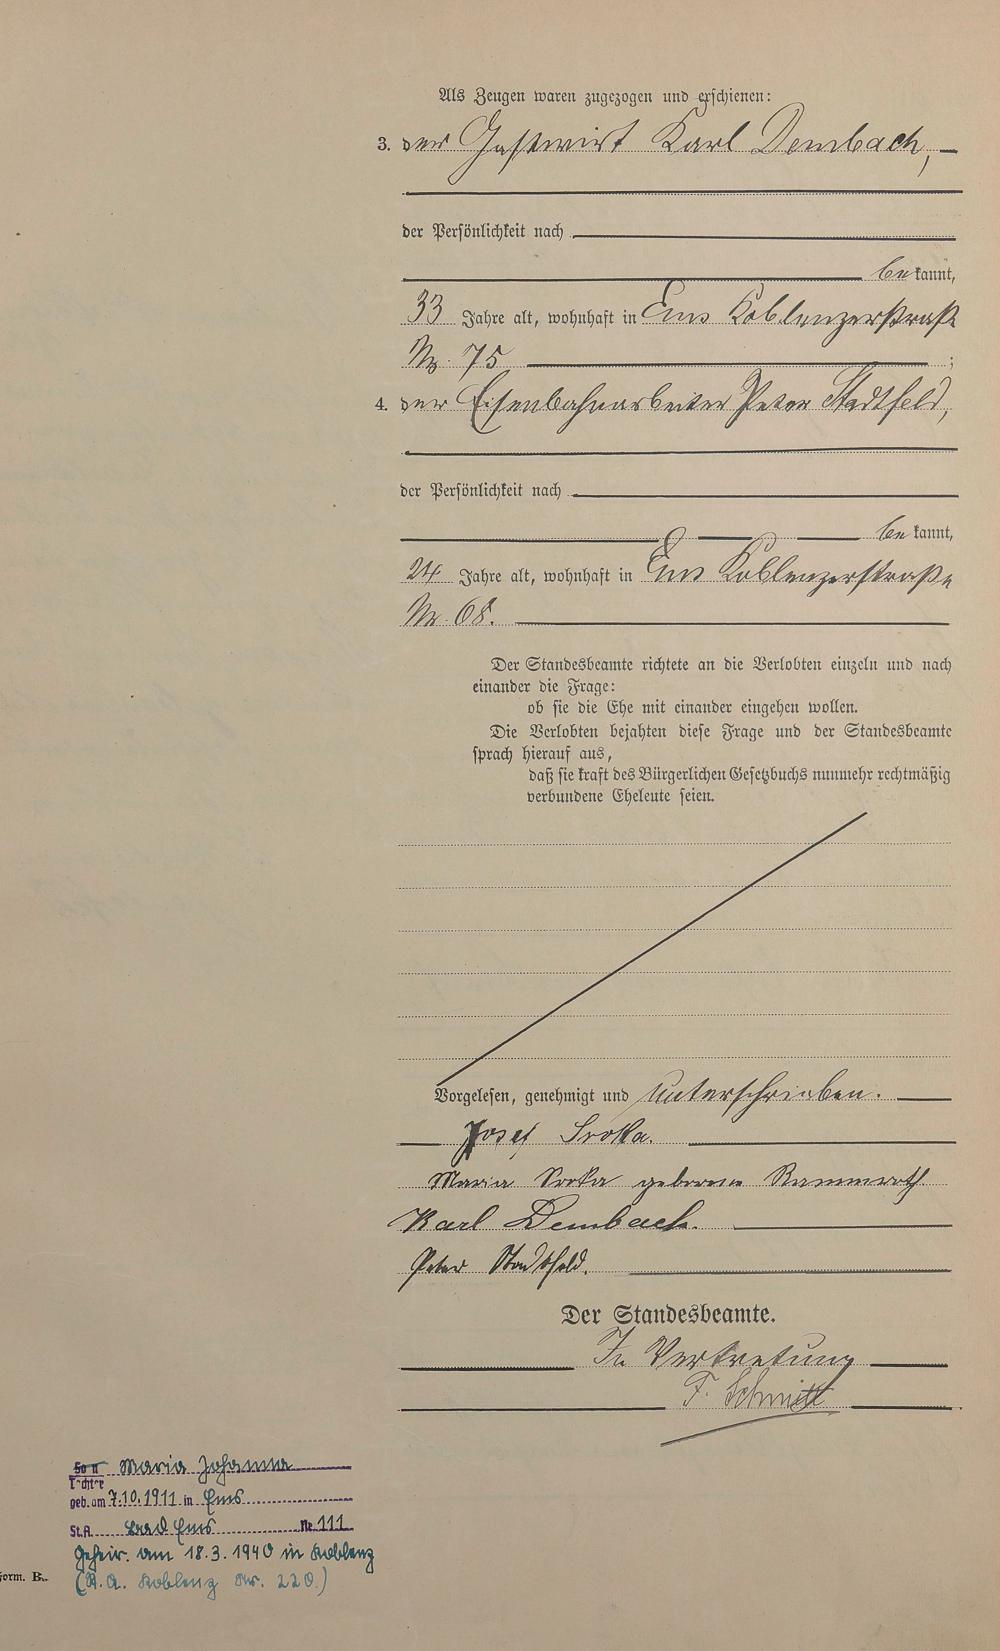 Als Zeugen waren zugezogen und erschienen:
3. der Gastwirt Karl Dembach,
der Persönlichkeit nach
bekannt,
33 Jahre alt, wohnhaft in Ems Koblenzerstraße
Nr. 75 ;
4. der Eisenbahnarbeiter Peter Stadtfeld,
der Persönlichkeit nach
bekannt,
24 Jahre alt, wohnhaft in Ems Koblenzerstraße
Nr. 68.
Der Standesbeamte richtete an die Verlobten einzeln und nach
einander die Frage:
ob sie die Ehe mit einander eingehen wollen.
Die Verlobten bejahten diese Frage und der Standesbeamte
sprach hierauf aus,
daß sie kraft des Bürgerlichen Gesetzbuchs nunmehr rechtmäßig
verbundene Eheleute seien.
Vorgelesen, genehmigt und unterschrieben.
Josef Sroka.
Maria Sroka geborene Rammroth
Karl Dembach.
Peter Stadtfeld.
Der Standesbeamte.
In Vertretung
F. Schmitt
Sohn Maria Johanna
Tochter
geb. am 7.10.1911 in Ems
St.A. Bad Ems Nr. 111
Geheir. am 18.3.1940 in Koblenz
(St.A. Koblenz Nr. 220.)
Form. B.